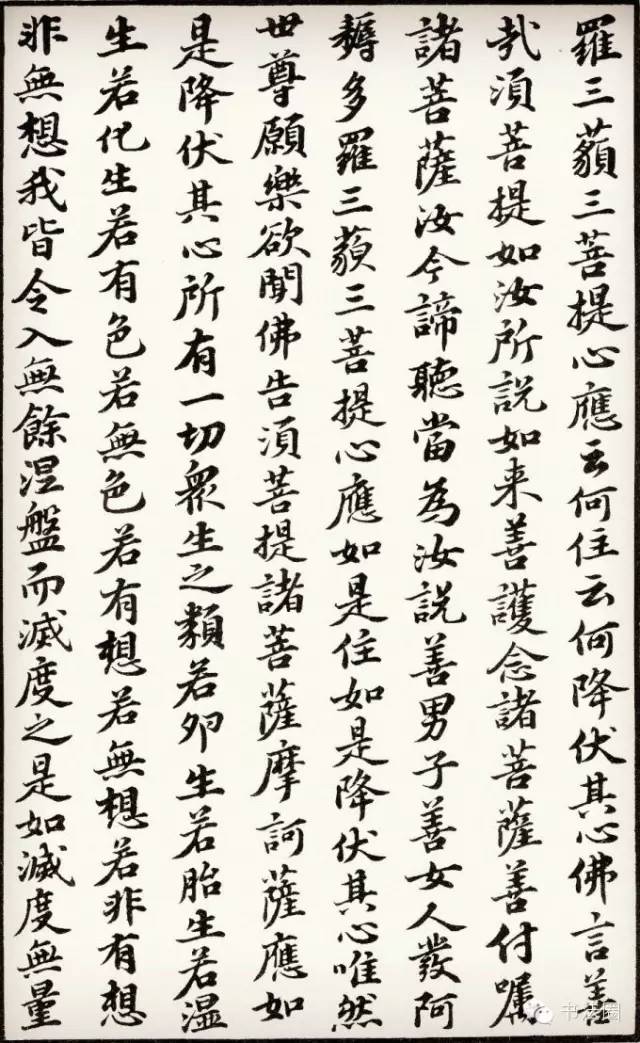 羅三藐三菩提心應云何住云何降伏其心佛言善
哉須菩提如汝所説如来善護念諸菩薩善付囑
諸菩薩汝今諦聽當為汝説善男子善女人發阿
耨多羅三藐三菩提心應如是住如是降伏其心唯然
世尊願樂欲聞佛告須菩提諸菩薩摩訶薩應如
是降伏其心所有一切衆生之類若卵生若胎生若温
生若化生若有色若無色若有想若無想若非有想
非無想我皆令入無餘涅盤而滅度之是如滅度無量
书法圈